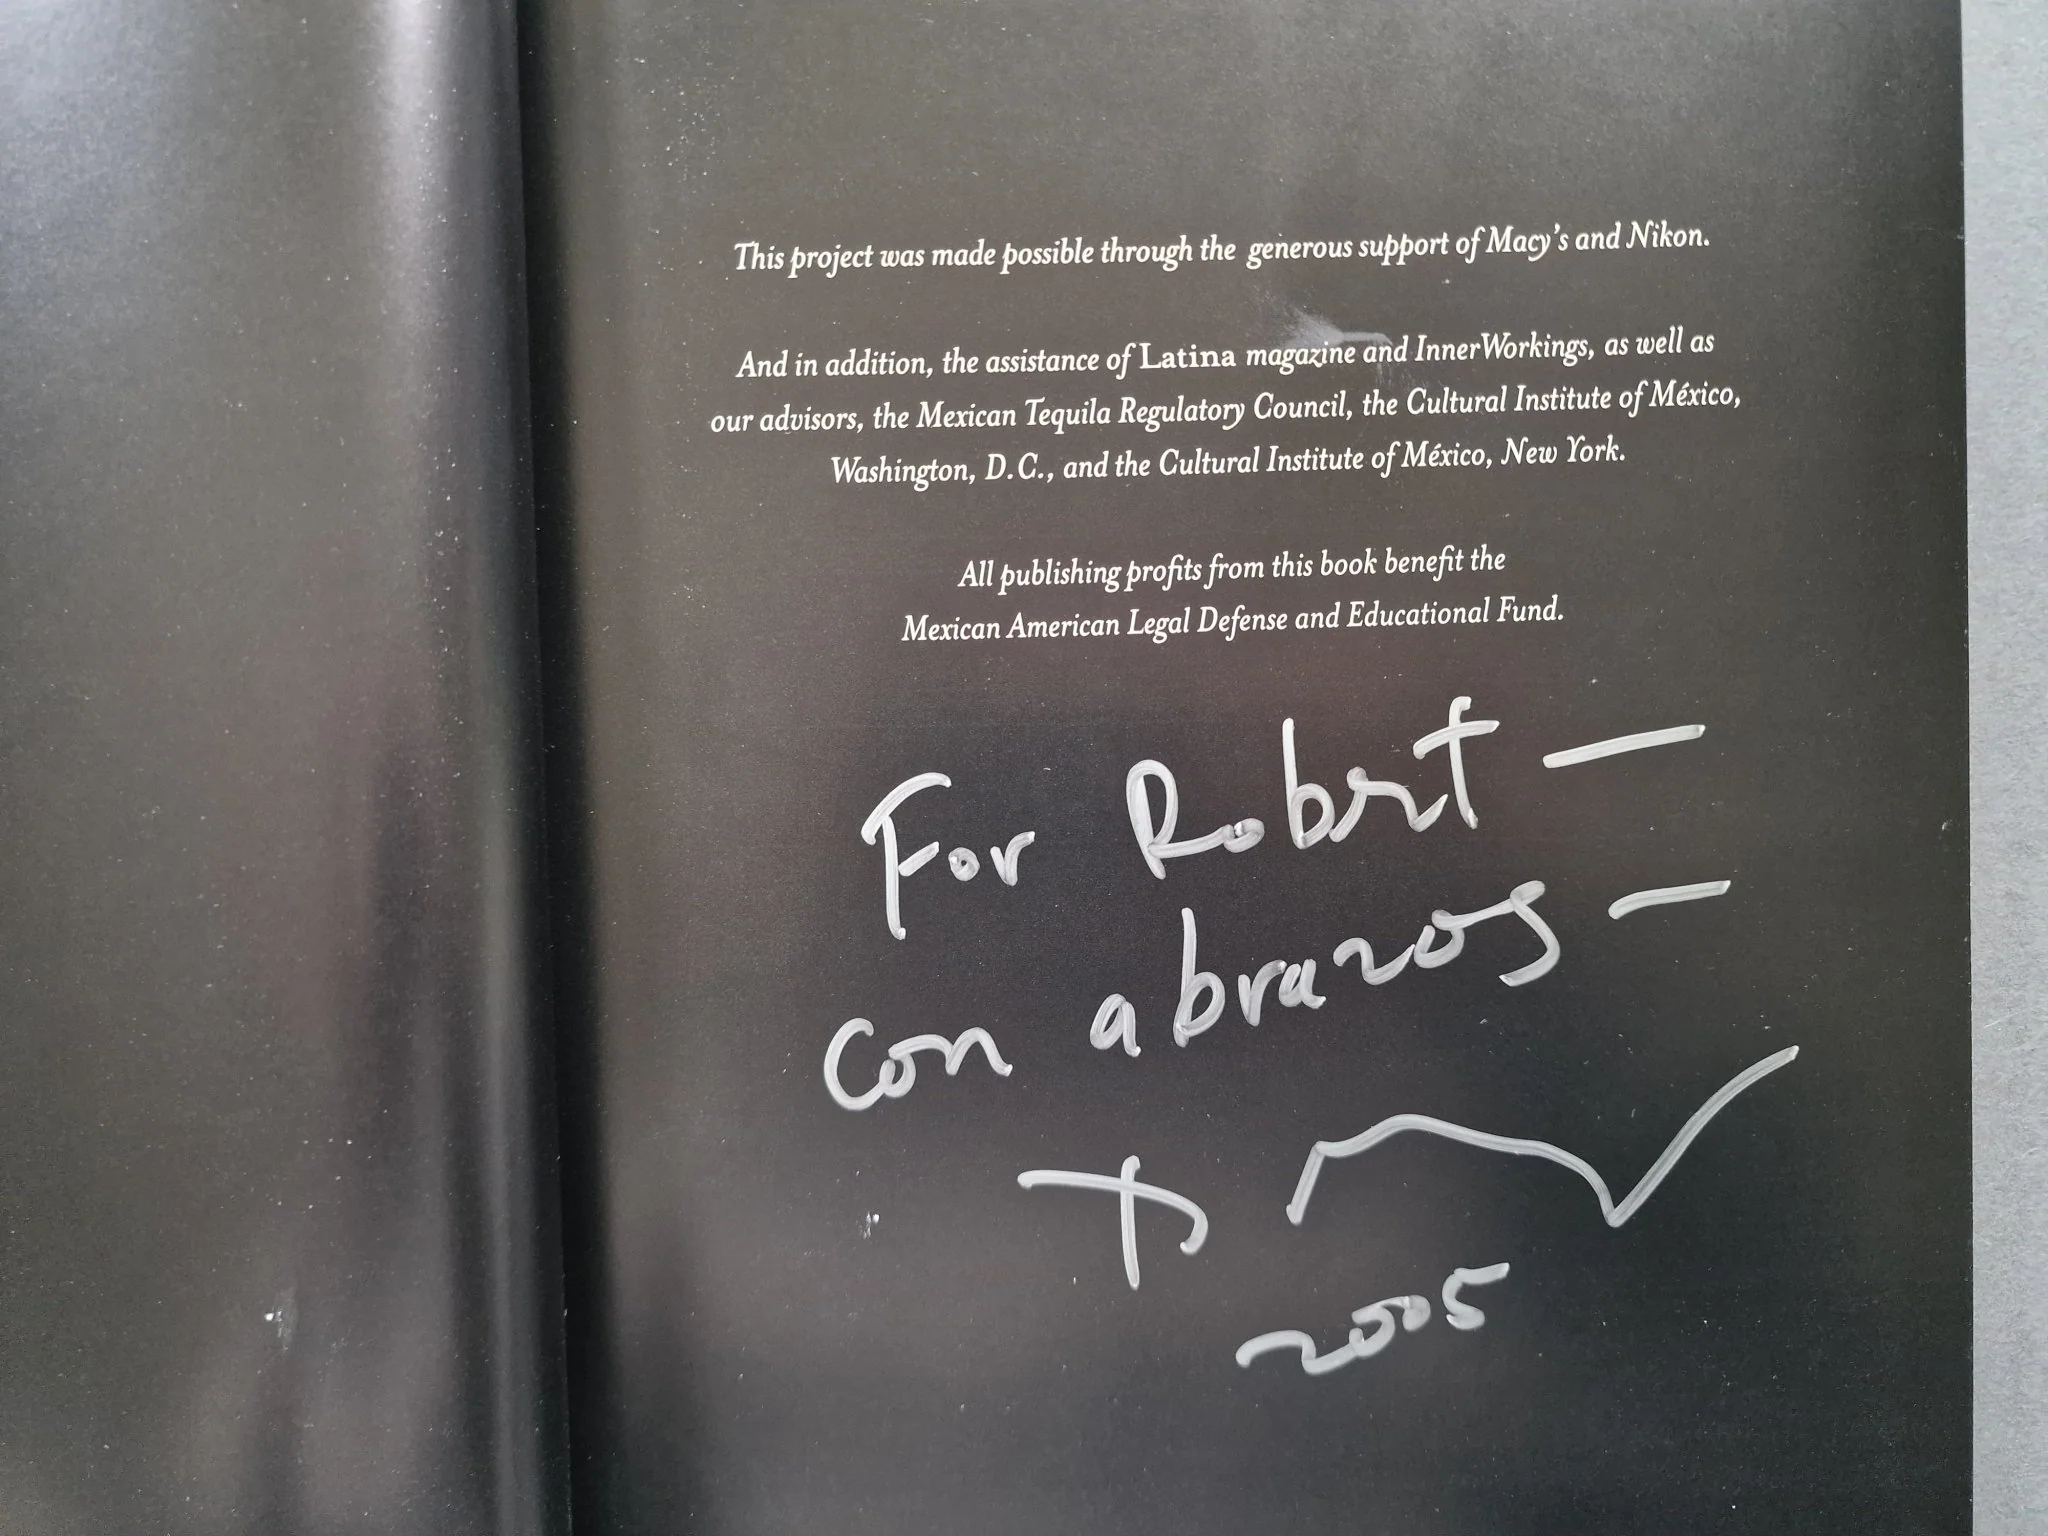 This project was made possible through the generous support of Macy's and Nikon.
And in addition, the assistance of Latina magazine and InnerWorkings, as well as
our advisors, the Mexican Tequila Regulatory Council, the Cultural Institute of México,
Washington, D.C., and the Cultural Institute of México, New York.
All publishing profits from this book benefit the
Mexican American Legal Defense and Educational Fund.
For Robert —
con abrazos —
2005